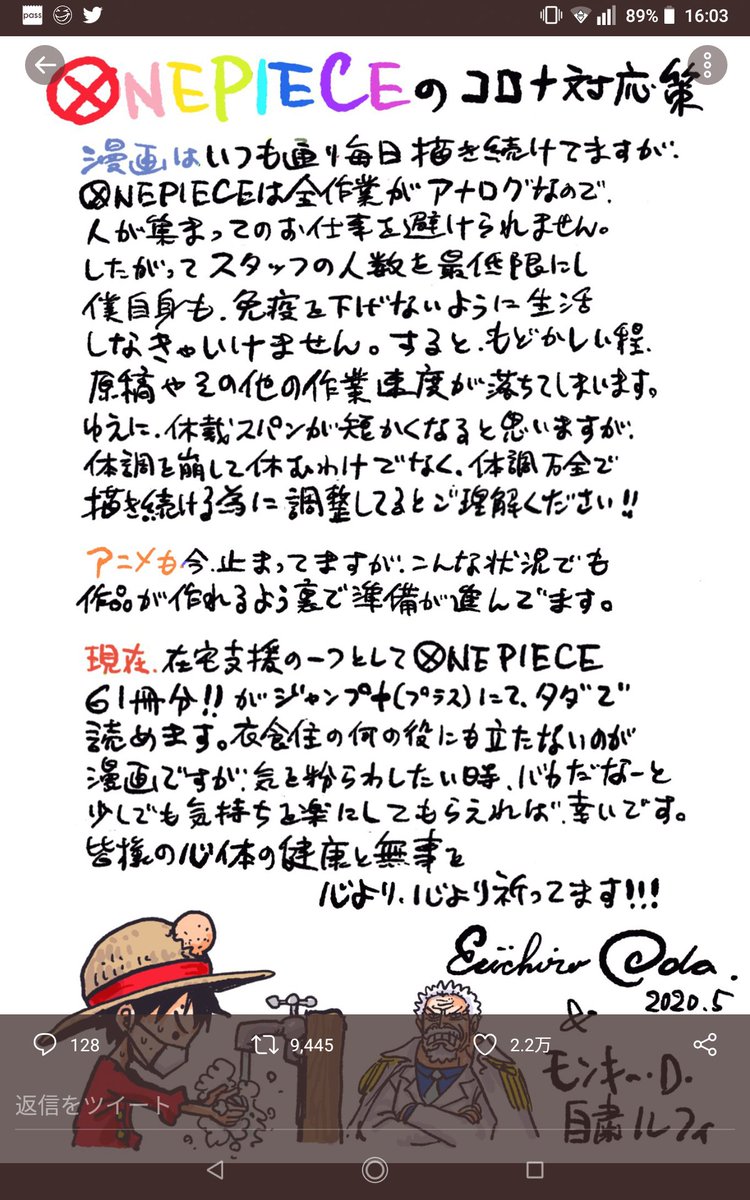 pass
89% 16:03
ONEPIECEのコロナ対応策
漫画はいつも通り毎日描き続けてますが、
ONEPIECEは全作業がアナログなので、
人が集まってのお仕事を避けられません。
したがってスタッフの人数を最低限にし
僕自身も、免疫を下げないように生活
しなきゃいけません。すると、もどかしい程、
原稿やその他の作業速度が落ちてしまいます。
ゆえに、休載スパンが短かくなると思いますが、
体調を崩して休むわけでなく、体調万全で
描き続ける為に調整してるとご理解ください!!
アニメも今、止まってますが、こんな状況でも
作品が作れるよう裏で準備が進んでます。
現在、在宅支援の一つとしてONEPIECE
61冊分!!がジャンプ+(プラス)にて、タダで
読めます。衣食住の何の役にも立たないのが
漫画ですが、気を紛らわしたい時、バカだなーと
少しでも気持ちを楽にしてもらえれば、幸いです。
皆様の心体の健康と無事を
心より、心より祈ってます!!!
Eiichiro Oda.
2020.5
&
モンキー・D・
自粛ルフィ
128 9,445 2.2万
返信をツイート